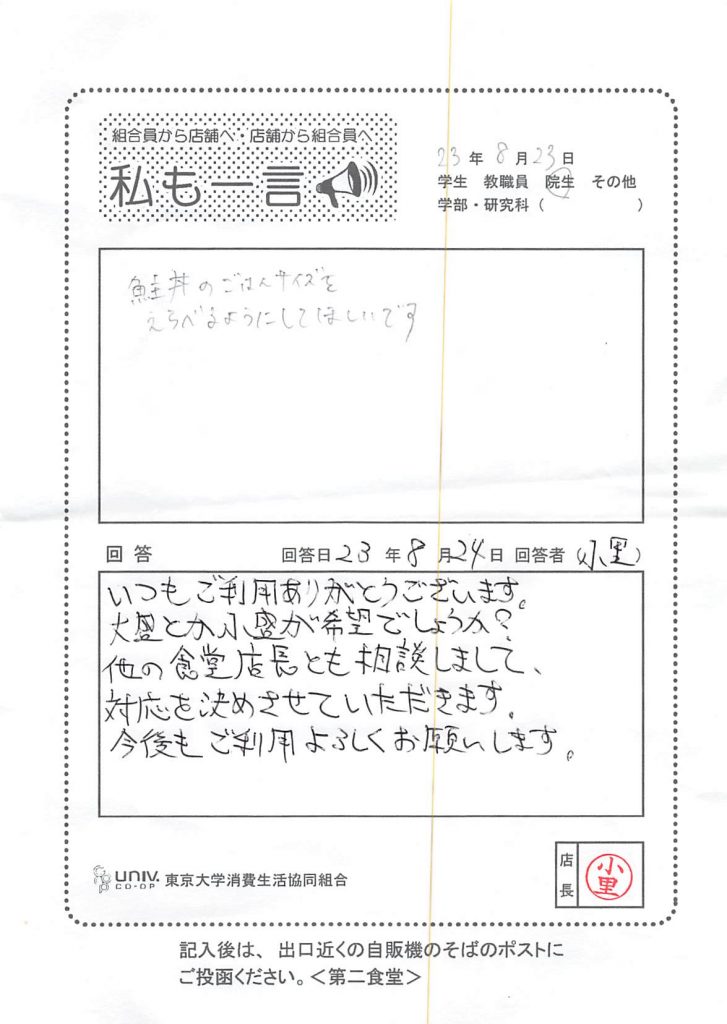 組合員から店舗へ・店舗から組合員へ
私も一言
23年8月23日
学生 教職員 院生 その他
学部・研究科( )
鮭丼のごはんサイズを
えらべるようにしてほしいです
回答 回答日23年8月24日 回答者(小里)
いつもご利用ありがとうございます。
大盛とか小盛が希望でしょうか?
他の食堂店長とも相談しまして、
対応を決めさせていただきます。
今後もご利用よろしくお願いします。
店長 小里
UNIV. CO-OP 東京大学消費生活協同組合
記入後は、出口近くの自販機のそばのポストに
ご投函ください。<第二食堂>